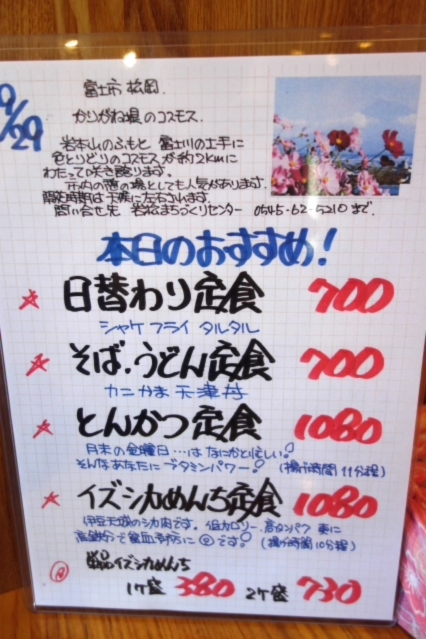 9/29
富士市 松岡.
かりがね堤のコスモス.
岩本山のふもと 富士川の土手に
色とりどりのコスモスが約2kmに
わたって咲き誇ります。
市内の憩の場としても人気があります.
開花時期は天候に左右されます。
問い合せ先 岩松まちづくりセンター 0545-62-5210まで.
本日のおすすめ!
☆ 日替わり定食 700
シャケフライ タルタル
☆ そば.うどん定食 700
カニかま天津丼
☆ とんかつ定食 1080
月末の金曜日…は なにかと忙しい!
そんなあなたに ビタミンパワー! (揚げ時間11分程)
☆ イズシカめんち定食 1080
伊豆天城のシカ肉です。低カロリー.高タンパク 更に
高鉄分で貧血予防に◎です! (揚げ時間10分程)
単品イズシカめんち
1ケ盛 380 2ケ盛 730